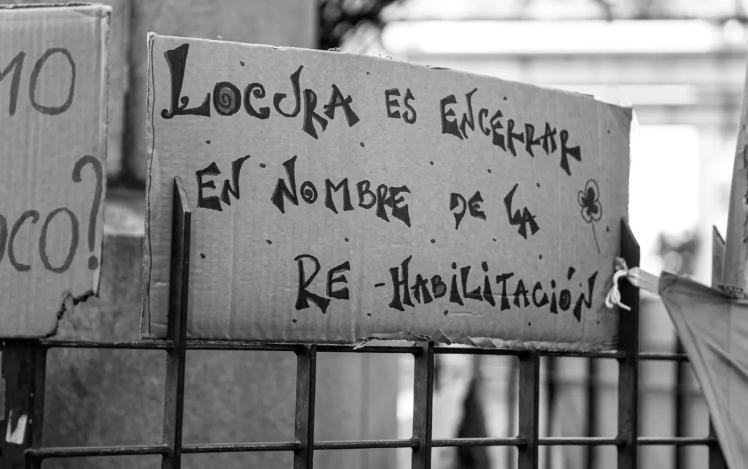 MO
OCO?
LOCURA ES ENCERRAR
EN NOMBRE DE LA
RE-HABILITACIÓN